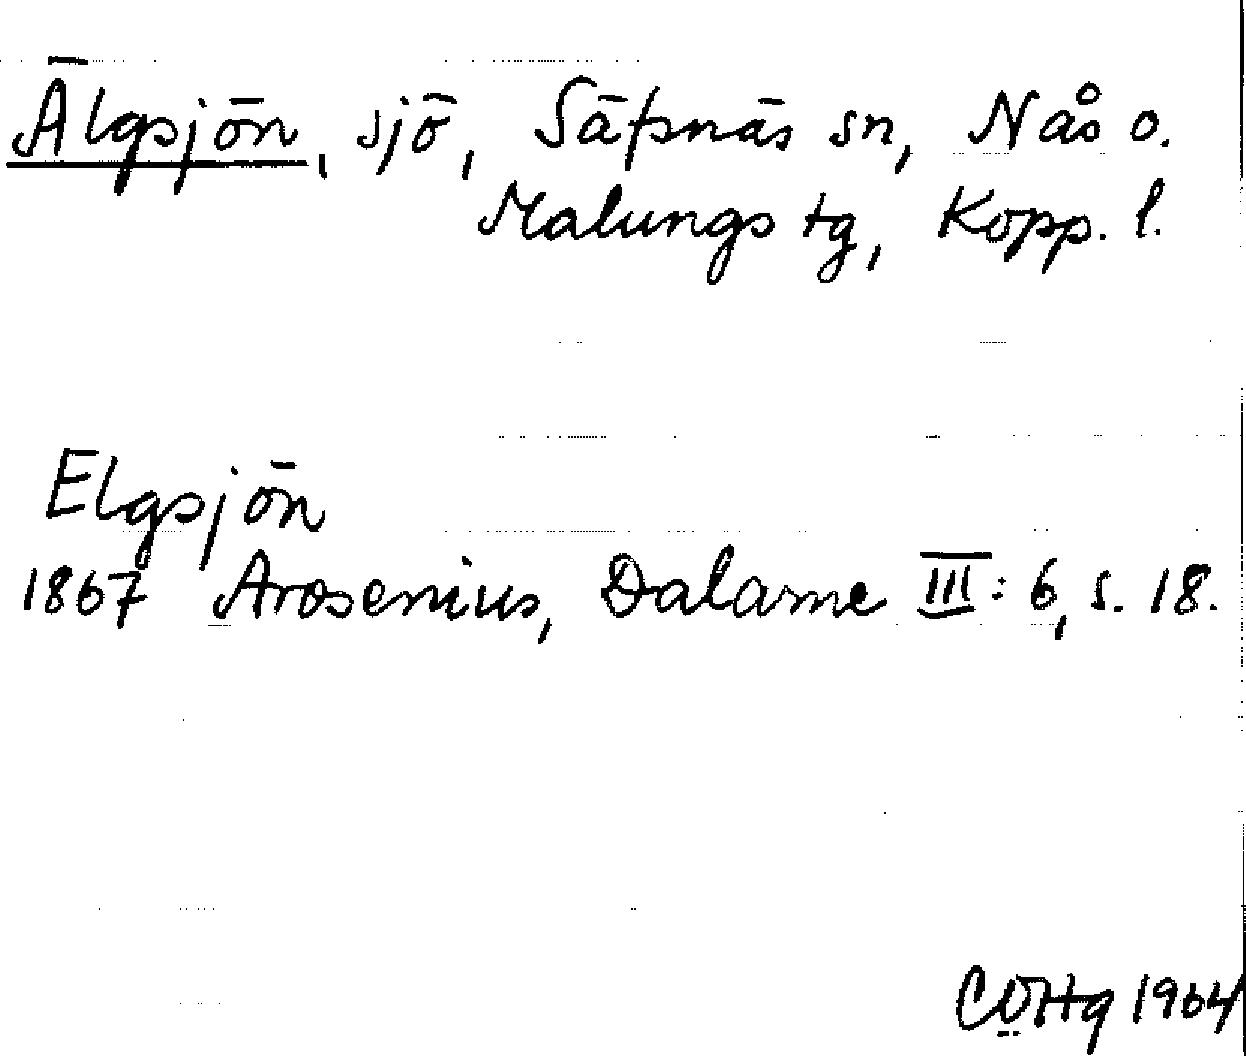 Älgsjön, sjö, Säfsnäs sn, Nås o.
Malungs tg, Kopp. l.
Elgsjön
1867 Arosenius, Dalarne III: 6, s. 18.
1964